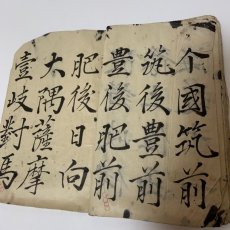 个國筑前
筑後豊前
豊後肥前
肥後日向
大隅薩摩
壹岐對馬